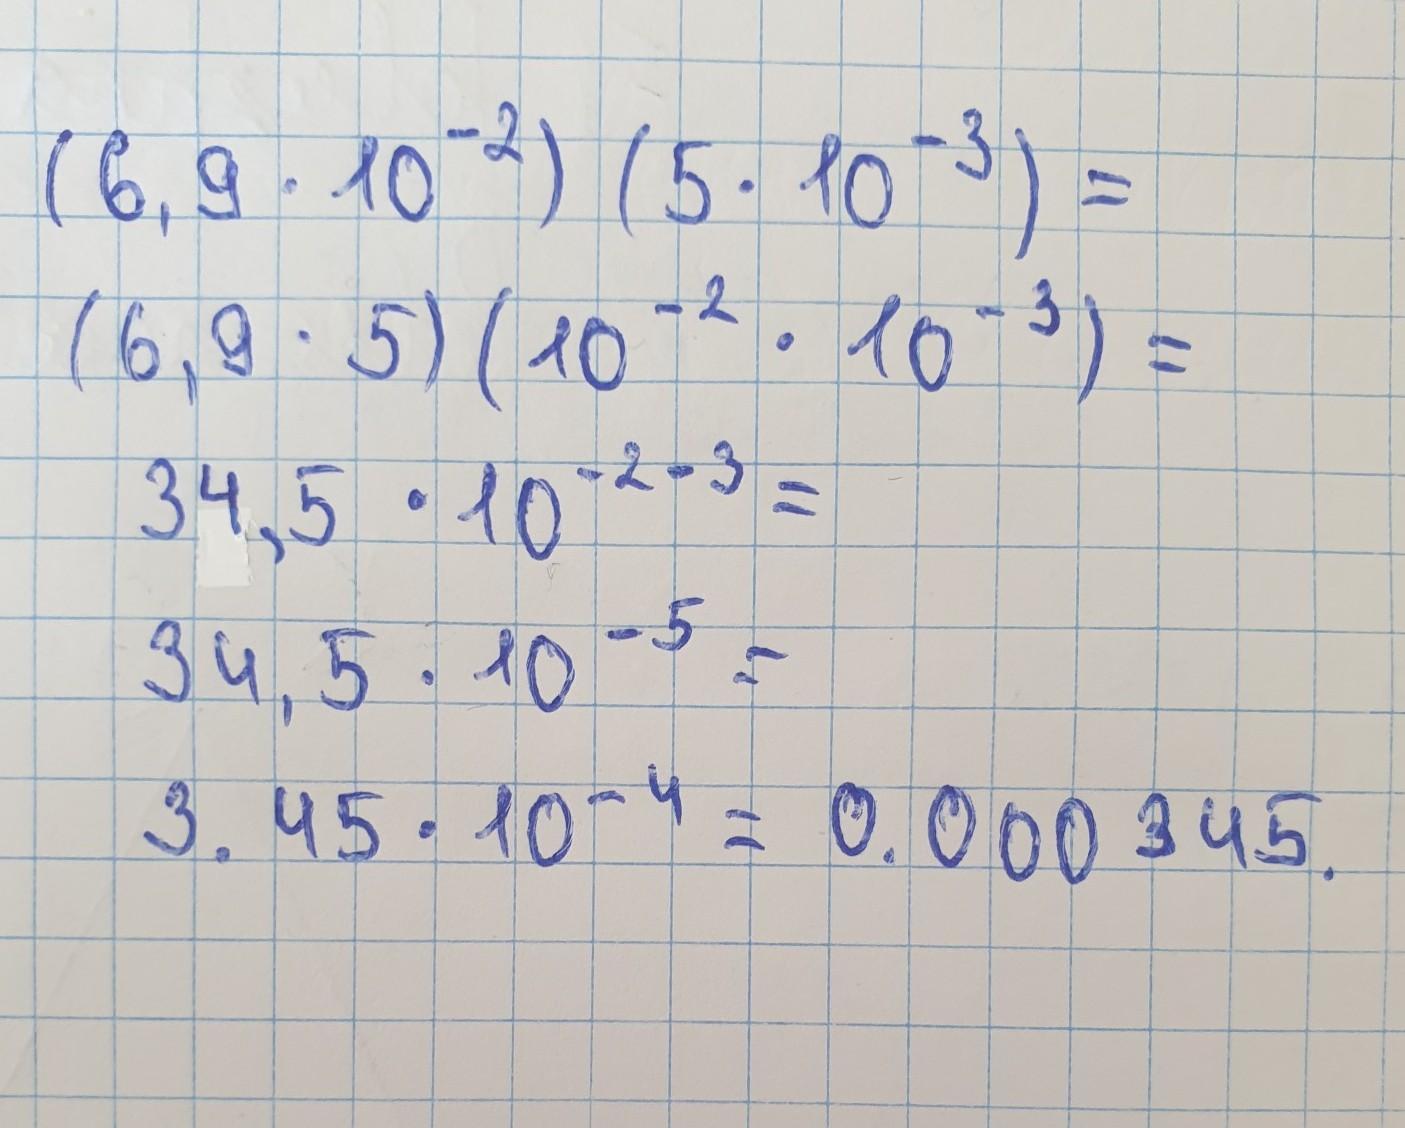 (6,9 · 10⁻²) (5 · 10⁻³) =
(6,9 · 5) (10⁻² · 10⁻³) =
34,5 · 10⁻²⁻³ =
34,5 · 10⁻⁵ =
3.45 · 10⁻⁴ = 0.000345.